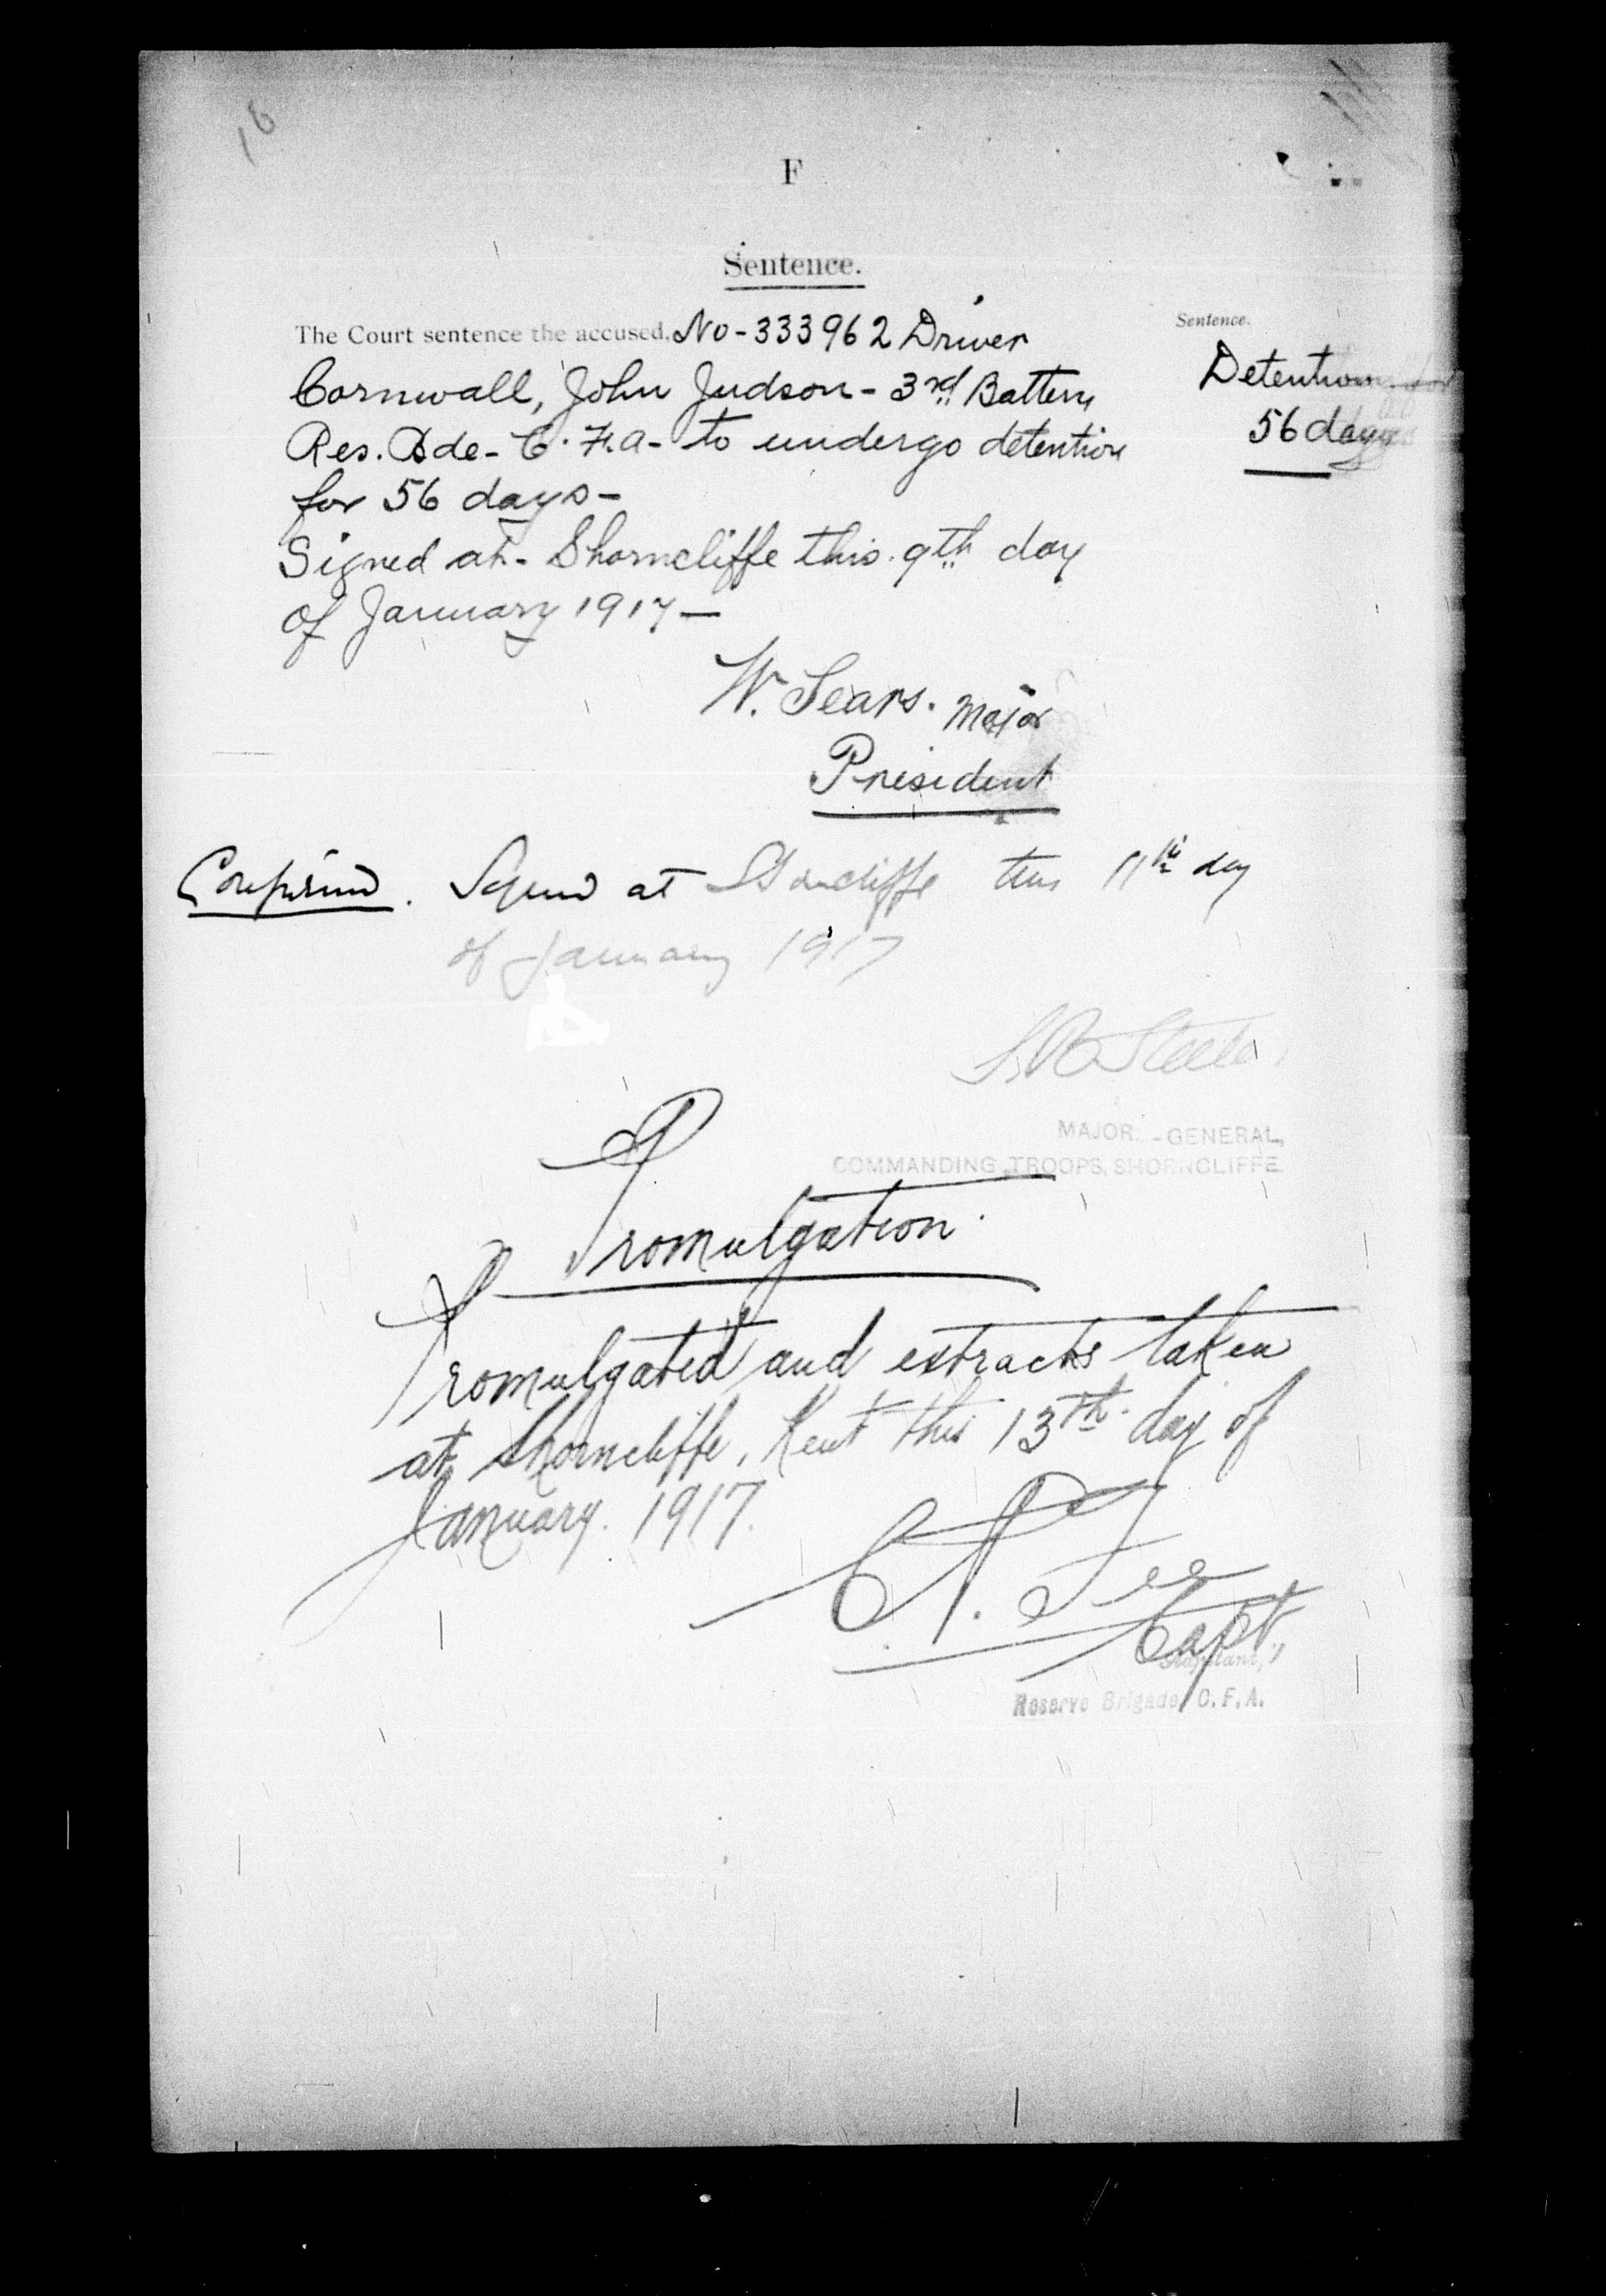 16
F
Sentence.
The Court sentence the accused, No - 333962 Driver
Cornwall, John Judson - 3rd Battery
Res. Bde - C. F. a - to undergo detention
for 56 days -
Signed at - Shorncliffe this 9th day
of January 1917 —
Sentence.
Detention for
56 days
W. Sears. Major
President
Confirmed. Signed at Shorncliffe this 11th day
of January 1917
S B Steele
MAJOR - GENERAL,
COMMANDING TROOPS, SHORNCLIFFE
Promulgation.
Promulgated and extracts taken
at Shorncliffe, Kent this 13th day of
January. 1917.
Capt.,
Adjutant,
Reserve Brigade, C.F.A.